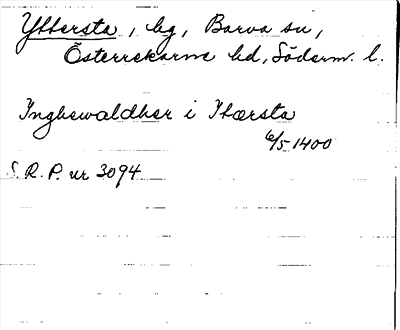 Yttersta, by, Barva sn,
Österrekarne hd, Söderm. l.
Inghewaldher i Ytærsta
6/5 1400
S.R.P. nr 3094